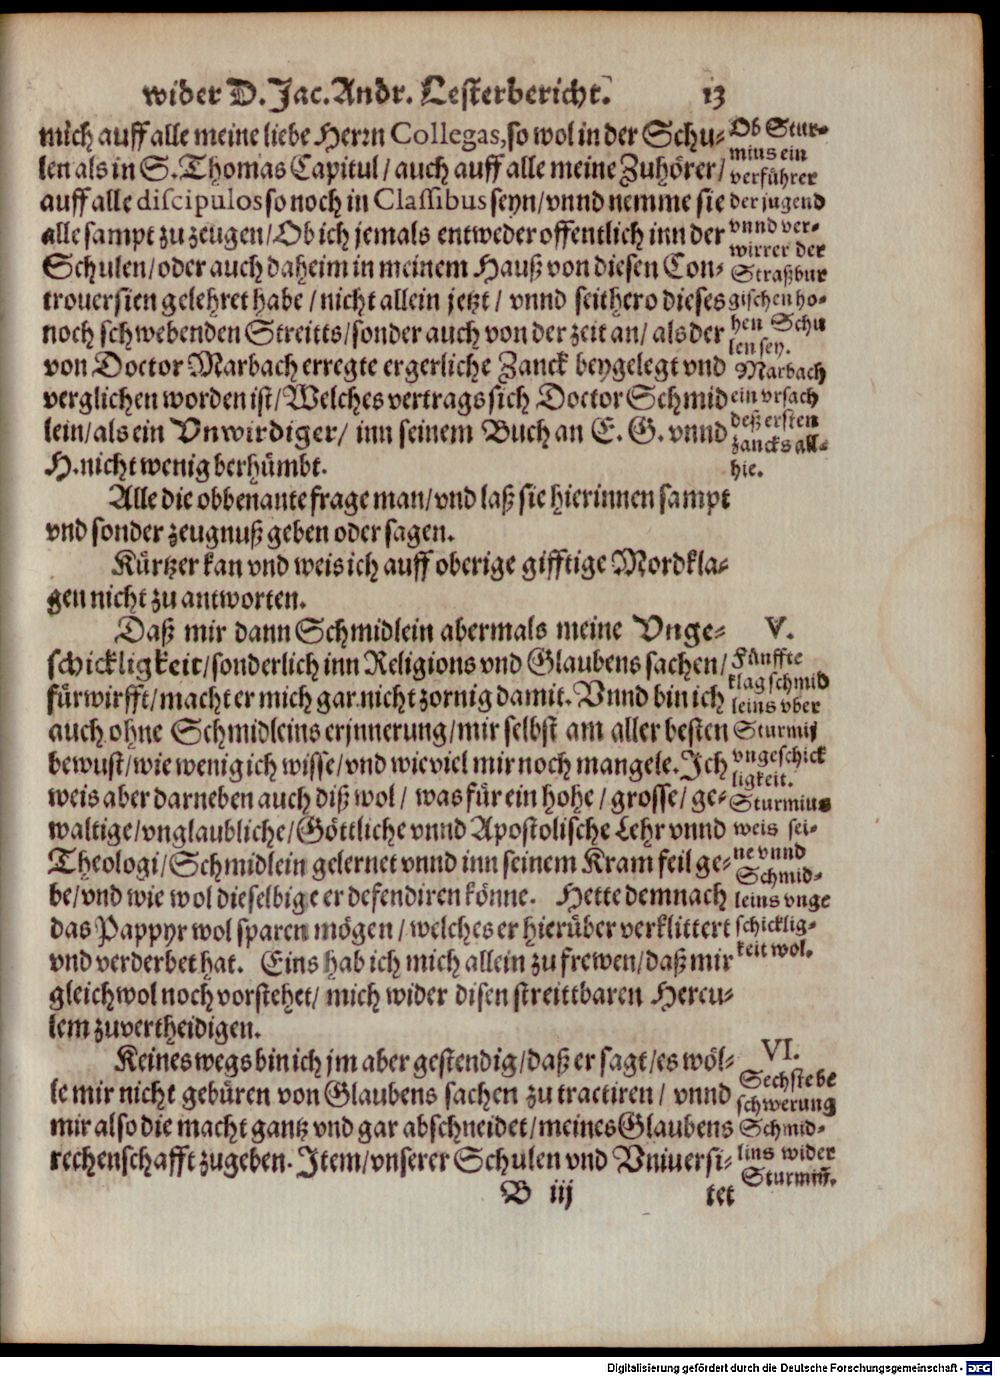 wider D. Jac. Andr. Lesterbericht. 13
mich auff alle meine liebe Herrn Collegas, so wol in der Schu-
len als in S. Thomas Capitul / auch auff alle meine Zuhörer /
auff alle discipulos so noch in Classibus seyn / vnnd nemme sie
alle sampt zu zeugen / Ob ich jemals entweder offentlich inn der
Schulen / oder auch daheim in meinem Hauß von diesen Con-
trouersien gelehret habe / nicht allein jetzt / vnnd seithero dieses
noch schwebenden Streitts / sonder auch von der zeit an / als der
von Doctor Marbach erregte ergerliche Zanck beygelegt vnd
verglichen worden ist / Welches vertrags sich Doctor Schmid
lein / als ein Vnwirdiger / inn seinem Buch an E. G. vnnd
H. nicht wenig berhümbt.
Ob Stur-
mius ein
verführer
der jugend
vnnd ver-
wirrer der
Straßbur
gischen ho-
hen Schu
len sey.
Marbach
ein vrsach
deß ersten
zancks all-
hie.
Alle die obbenante frage man / vnd laß sie hierinnen sampt
vnd sonder zeugnuß geben oder sagen.
Kürtzer kan vnd weis ich auff oberige gifftige Mordkla-
gen nicht zu antworten.
Daß mir dann Schmidlein abermals meine Vnge-
schickligkeit / sonderlich inn Religions vnd Glaubens sachen /
fürwirfft / macht er mich gar nicht zornig damit. Vnnd bin ich
auch ohne Schmidleins erjnnerung / mir selbst am aller besten
bewust / wie wenig ich wisse / vnd wie viel mir noch mangele. Ich
weis aber darneben auch diß wol / was für ein hohe / grosse / ge-
waltige / vnglaubliche / Göttliche vnnd Apostolische Lehr vnnd
Theologi / Schmidlein gelernet vnnd inn seinem Kram feil ge-
be / vnd wie wol dieselbige er defendiren könne. Hette demnach
das Pappyr wol sparen mögen / welches er hierüber verklittert
vnd verderbet hat. Eins hab ich mich allein zu frewen / daß mir
gleichwol noch vorstehet / mich wider disen streittbaren Hercu-
lem zuvertheidigen.
V.
Fünffte
klag schmid
leins vber
Sturmij
vngeschick
ligkeit.
Sturmius
weis sei-
ne vnnd
Schmid-
leins vnge
schicklig-
keit wol.
Keines wegs bin ich jm aber gestendig / daß er sagt / es wöl-
le mir nicht gebüren von Glaubens sachen zu tractiren / vnnd
mir also die macht gantz vnd gar abschneidet / meines Glaubens
rechenschafft zugeben. Item / vnserer Schulen vnd Vniuersi-
VI.
Sechste be
schwerung
Schmid-
lins wider
Sturmiū.
B iij tet
Digitalisierung gefördert durch die Deutsche Forschungsgemeinschaft - DFG